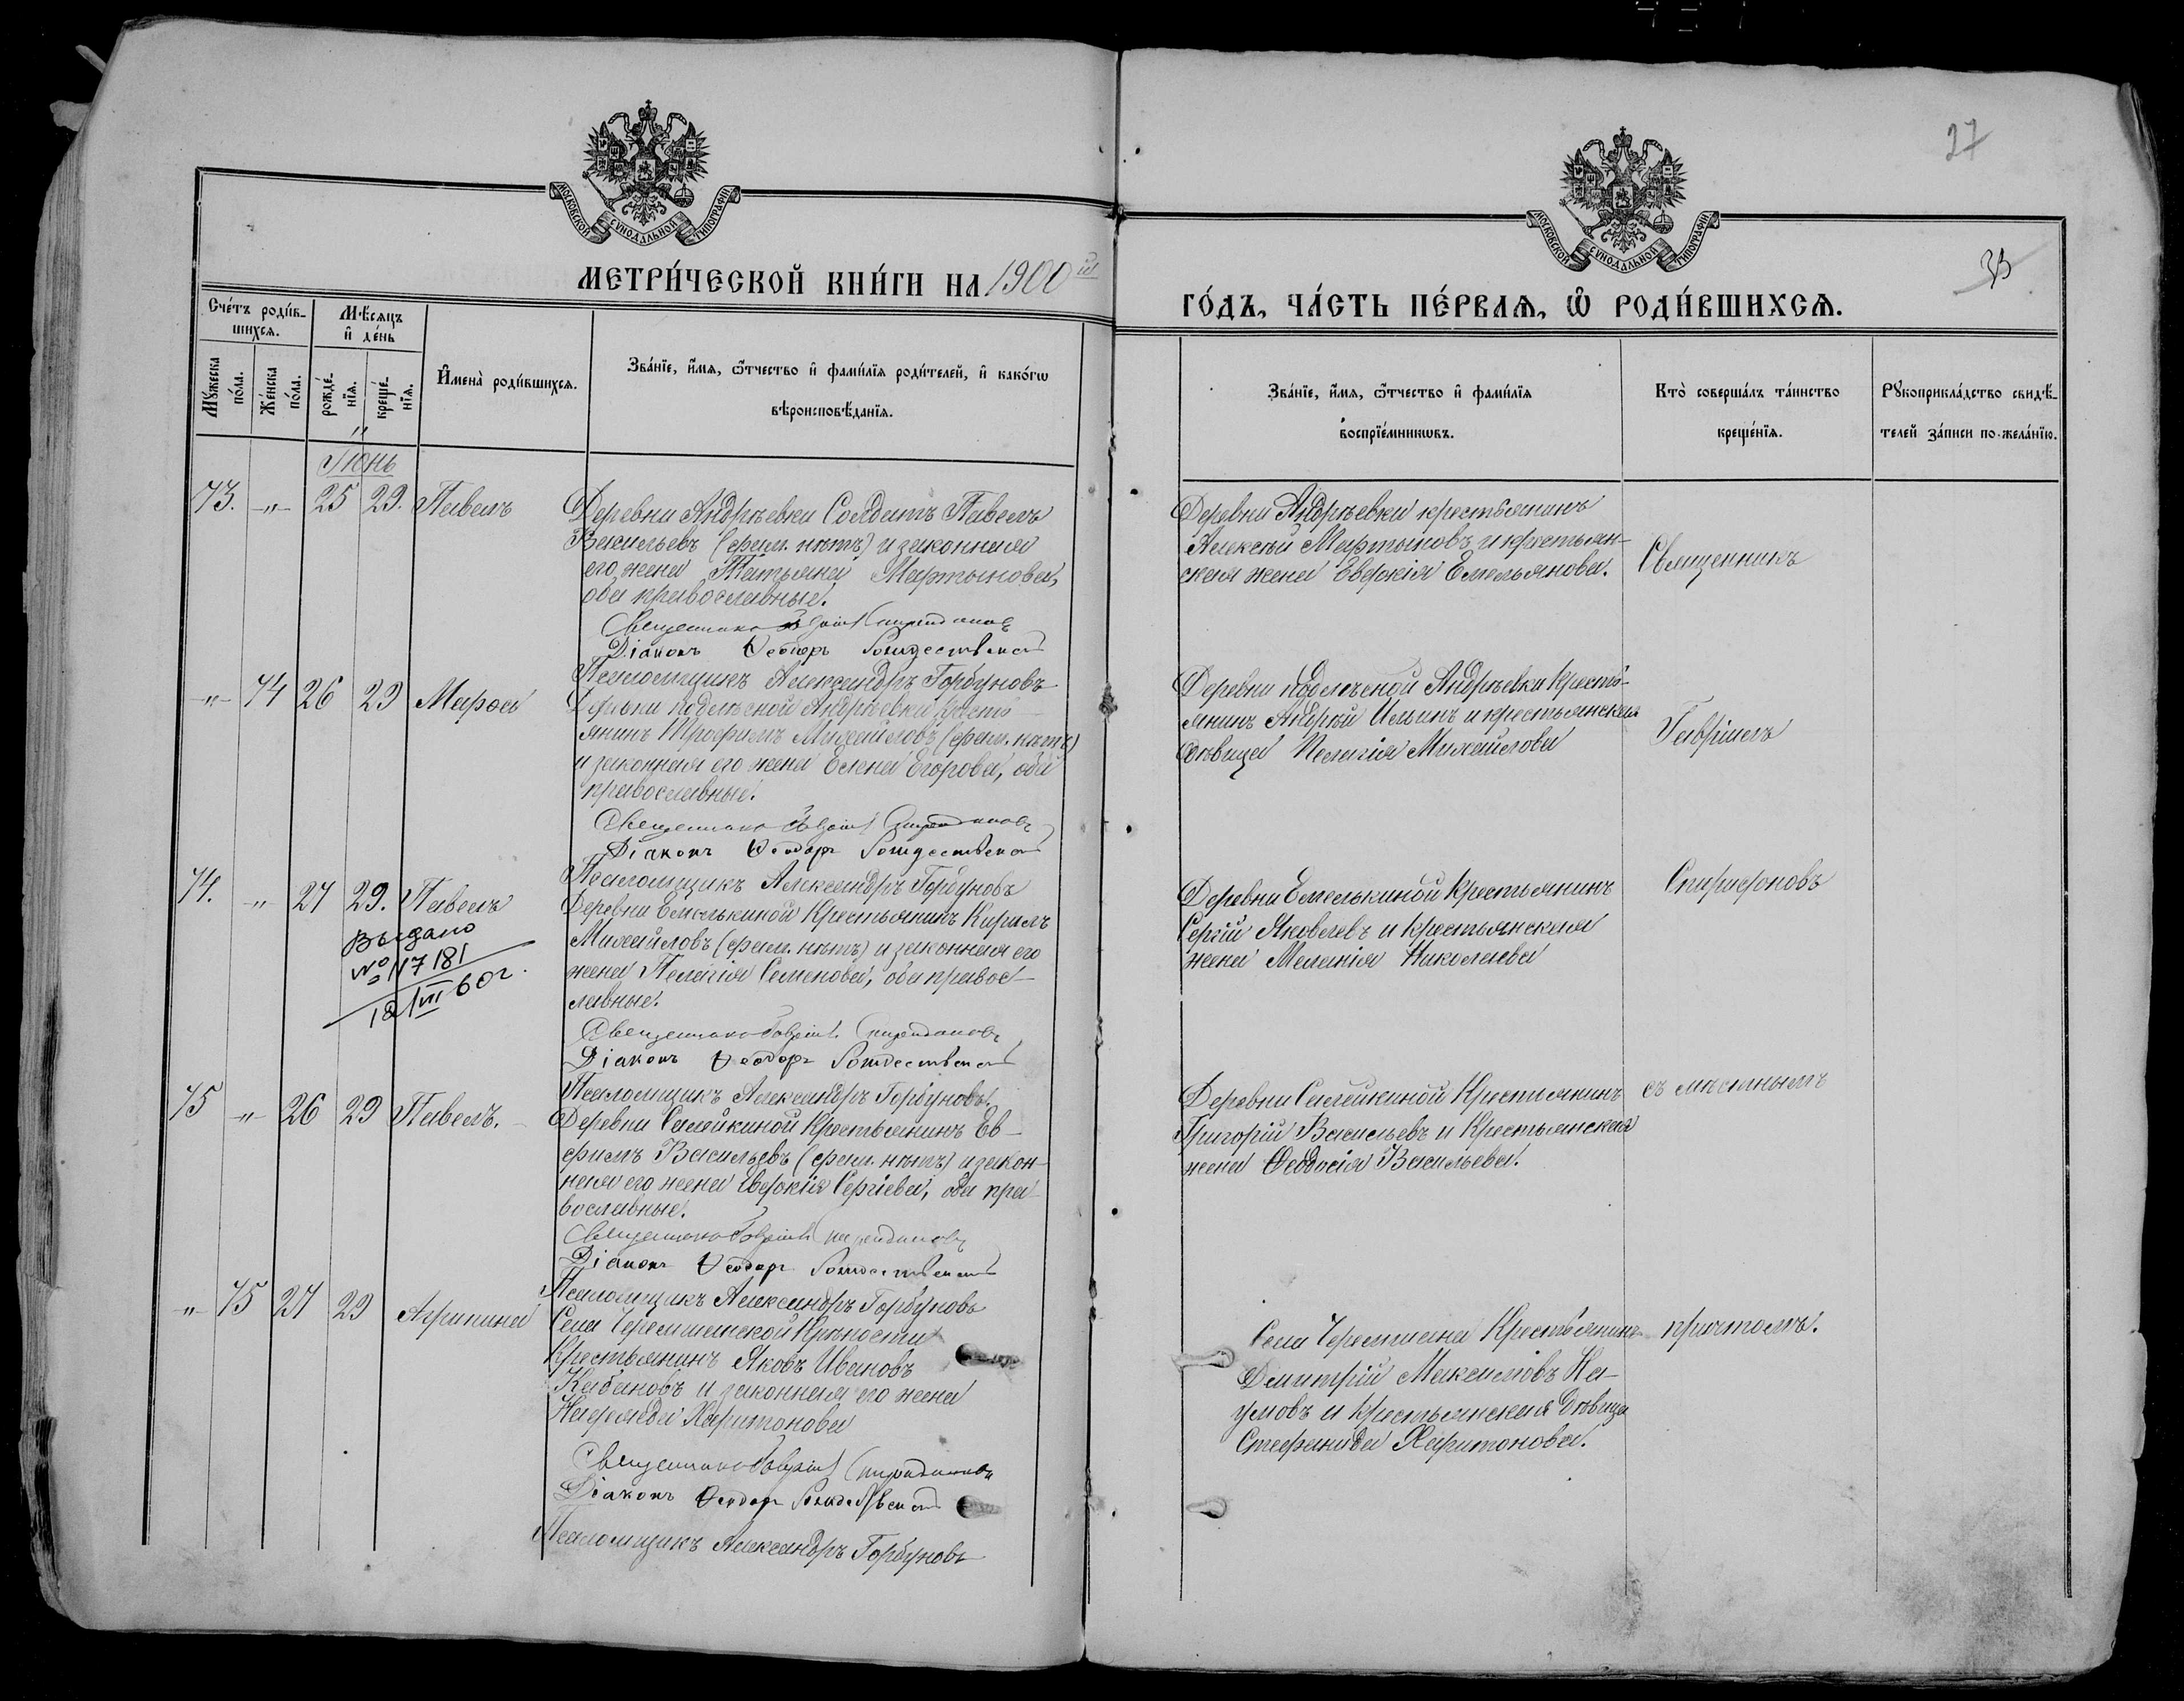 27
33
МОСКОВСКОЙ СѴНОДАЛЬНОЙ ТИПОГРАФІИ
МОСКОВСКОЙ СѴНОДАЛЬНОЙ ТИПОГРАФІИ
МЕТРИ́ЧЕСКОЙ КНИ́ГИ НА 1900й
ГО́ДЪ, ЧА́СТЬ ПЕ́РВАѦ, Ѽ РОДИ́ВШИХСѦ.
Сче́тъ роди́в-
шихсѧ.
Мꙋ́жеска
по́ла.
Же́нска
по́ла.
Мѣ́сѧцъ
и҆ де́нь
рожде́-
нїѧ.
креще́-
нїѧ.
И҆мена̀ роди́вшихсѧ.
Зва́нїе, и҆́мѧ, ѻ҆́тчество и҆ фами́лїѧ роди́телей, и҆ како́гѡ
вѣроисповѣ́данїѧ.
Зва́нїе, и҆́мѧ, ѻ҆́тчество и҆ фами́лїѧ
воспрїе́мникѡвъ.
Кто̀ соверша́лъ та́инство
креще́нїѧ.
Рꙋкоприкла́дство свидѣ́-
телей за́писи по жела́нїю.
Іюнь
73. -"- 25 29. Павелъ
Деревни Андрѣевки Солдатъ Павелъ
Васильевъ (фам. нѣтъ) и законная
его жена Татьяна Мартынова,
оба православные.
Священникъ Гавріилъ Спиридоновъ
Діаконъ Ѳеодоръ Рождественскій
Псаломщикъ Александръ Горбуновъ
Деревни Андрѣевки крестьянинъ
Алексѣй Мартыновъ и крестьян-
ская жена Евдокія Емельянова.
Священникъ
-"- 74 26 29 Марѳа
Деревни подлѣсной Андрѣевки кресть-
янинъ Трофимъ Михайловъ (фам. нѣтъ)
и законная его жена Елена Егорова, оба
православные.
Священникъ Гавріилъ Спиридоновъ
Діаконъ Ѳеодоръ Рождественскій
Псаломщикъ Александръ Горбуновъ
Деревни подлѣсной Андрѣевки кресть-
янинъ Андрей Ильинъ и крестьянская
дѣвица Пелагія Михайлова
Гавріилъ
74. " 27 29. Павелъ
Выдано
№ 117181
12/VII 60 г.
Деревни Емелькиной Крестьянинъ Кирилъ
Михайловъ (фам. нѣтъ) и законная его
жена Пелагія Семенова, оба правос-
лавные.
Священникъ Гавріилъ Спиридоновъ
Діаконъ Ѳеодоръ Рождественскій
Псаломщикъ Александръ Горбуновъ
Деревни Емелькиной крестьянинъ
Сергій Яковлевъ и крестьянская
жена Меланія Николаева
Спиридоновъ
75 -"- 26 29 Павелъ.
Деревни Салейкиной Крестьянинъ Ев-
фимъ Васильевъ (фам. нѣтъ) и закон-
ная его жена Евдокія Сергіева, оба пра-
вославные.
Священникъ Гавріилъ Спиридоновъ
Діаконъ Ѳеодоръ Рождественскій
Псаломщикъ Александръ Горбуновъ
Деревни Салейкиной Крестьянинъ
Григорій Васильевъ и Крестьянская
жена Ѳеодосія Васильева.
съ мѣстнымъ
-"- 75 27 29 Агрипина
Села Черемшанской Крѣпости
Крестьянинъ Яковъ Ивановъ
Кабановъ и законная его жена
Надежда Харитонова
Священникъ Гавріилъ Спиридоновъ
Діаконъ Ѳеодоръ Рождественскій
Псаломщикъ Александръ Горбуновъ
Села Черемшана Крестьянинъ
Димитрій Максимовъ На-
умовъ и крестьянская дѣвица
Стефанида Харитонова.
причтомъ.